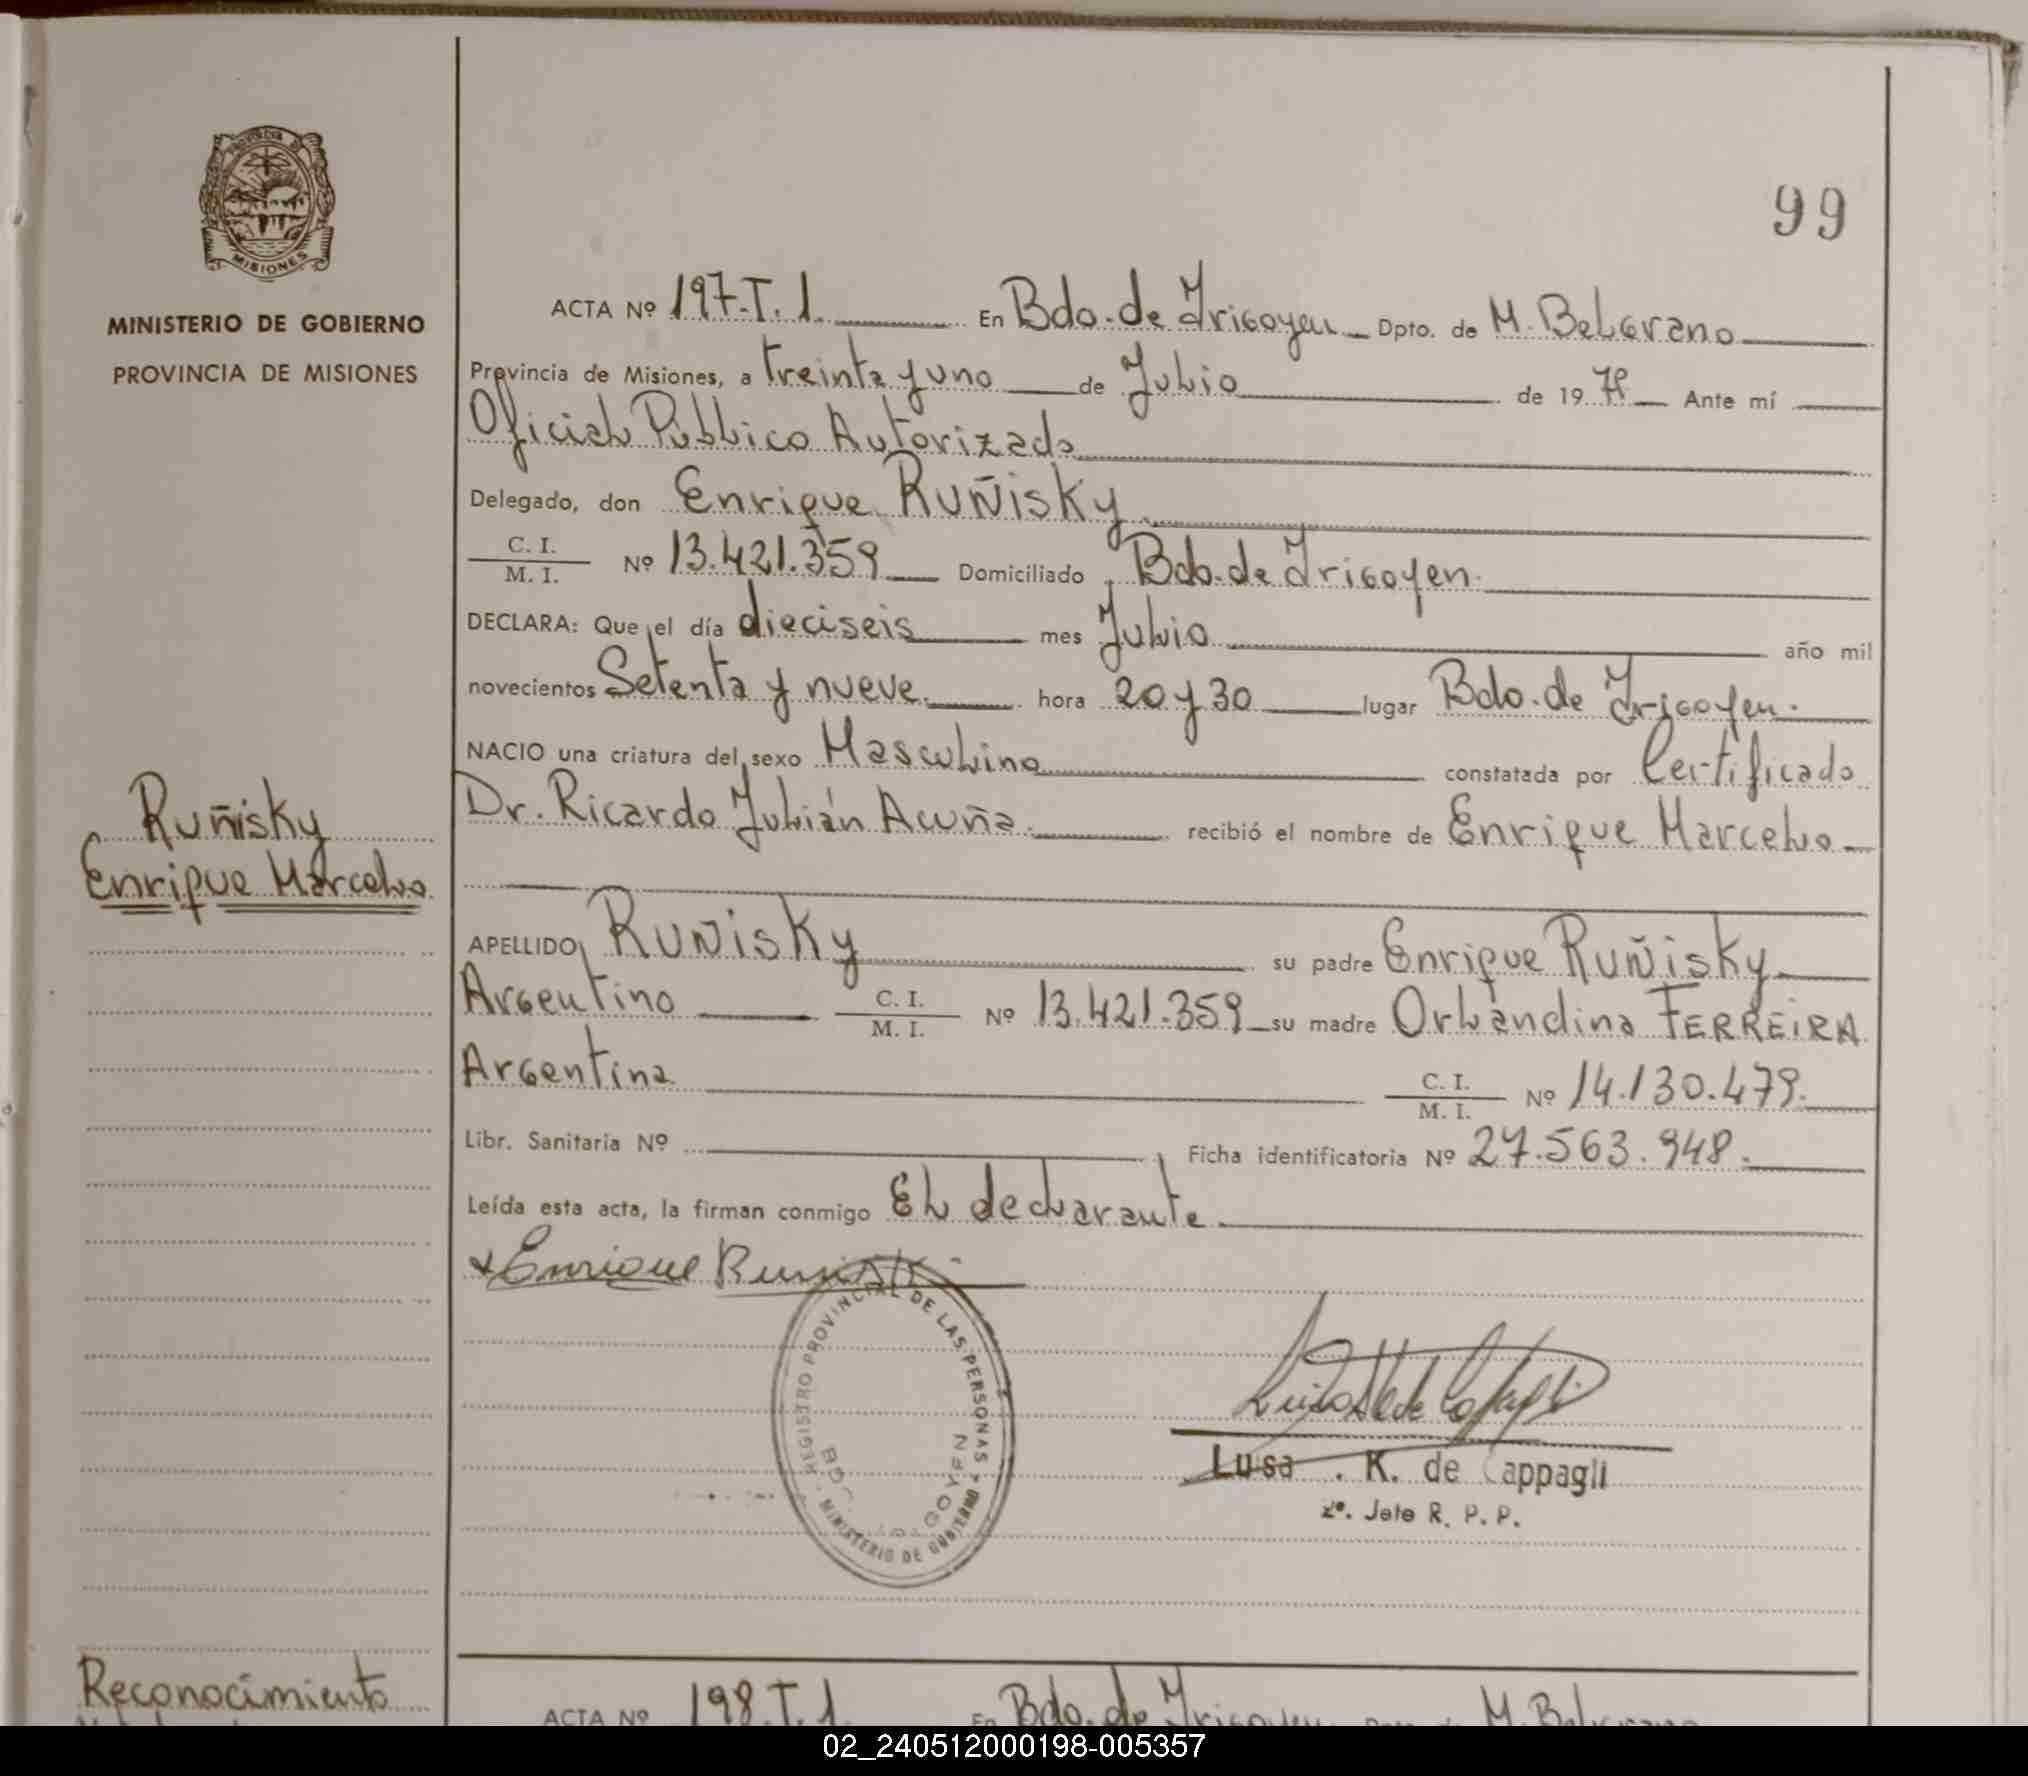 99
PROVINCIA DE
MISIONES
MINISTERIO DE GOBIERNO
PROVINCIA DE MISIONES
ACTA Nº 197.T.1. En Bdo. de Irigoyen Dpto. de M. Belgrano
Provincia de Misiones, a treinta y uno de Julio de 19 79 Ante mí
Oficial Público Autorizado
Delegado, don Enrique Ruñisky
C. I. / M. I. Nº 13.421.359 Domiciliado Bdo. de Irigoyen.
DECLARA: Que el día dieciseis mes Julio año mil
novecientos Setenta y nueve. hora 20 y 30 lugar Bdo. de Irigoyen.
NACIO una criatura del sexo Masculino constatada por Certificado
Dr. Ricardo Julián Acuña. recibió el nombre de Enrique Marcelo
Ruñisky
Enrique Marcelo
APELLIDO Ruñisky su padre Enrique Ruñisky
Argentino C. I. / M. I. Nº 13.421.359 su madre Orlandina FERREIRA
Argentina C. I. / M. I. Nº 14.130.479.
Libr. Sanitaria Nº Ficha identificatoria Nº 27.563.948.
Leída esta acta, la firman conmigo El declarante.
Enrique Ruñisky
REGISTRO PROVINCIAL DE LAS PERSONAS
MINISTERIO DE GOBIERNO
Lusa . K. de Cappagli
2º. Jefe R. P. P.
Reconocimiento
ACTA Nº 198.T.1. En Bdo. de Irigoyen M. Belgrano
02_240512000198-005357